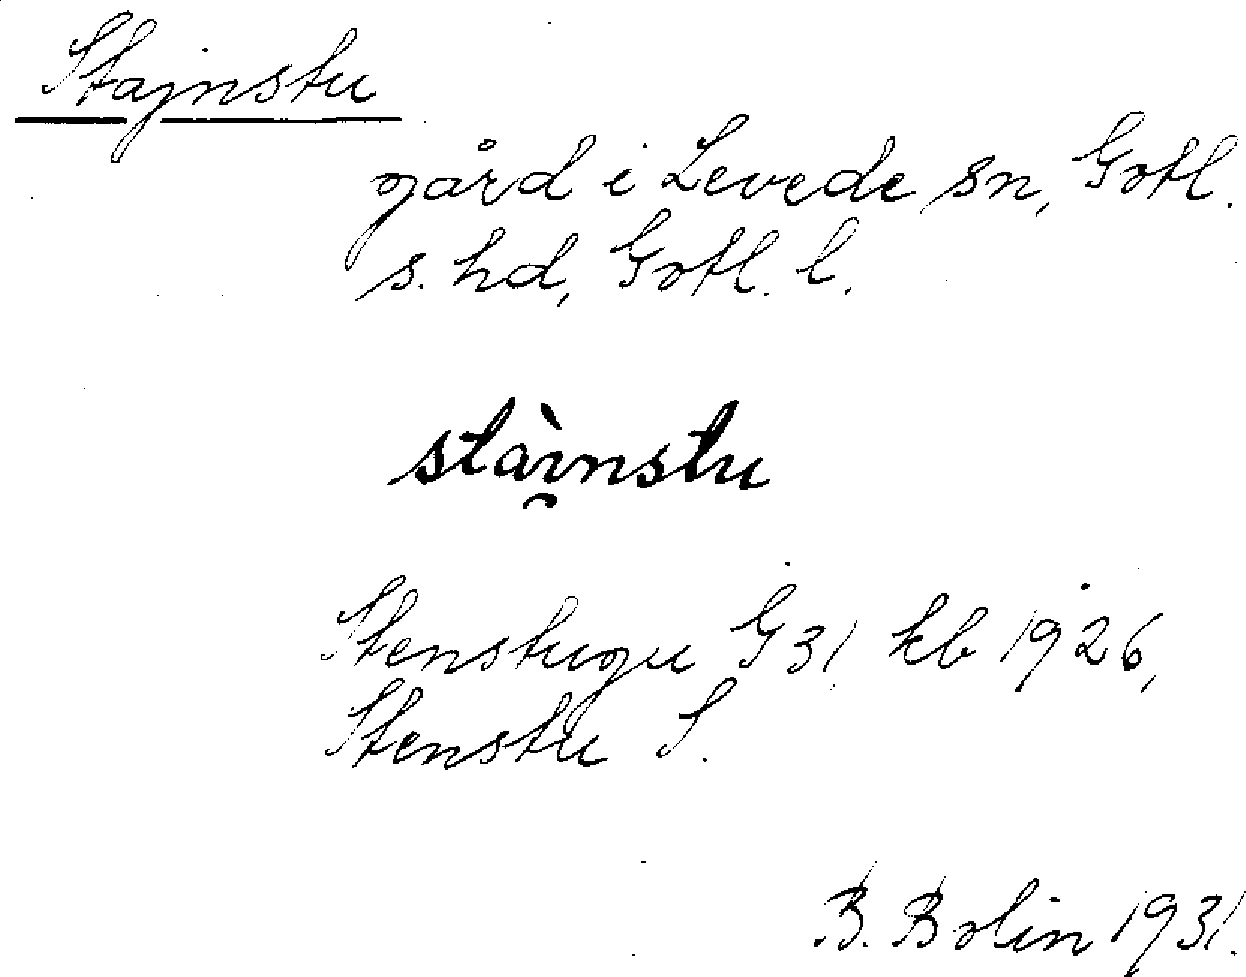 Stajnstu
gård i Levede sn, Gotl.
s. hd, Gotl. l.
stài̯nstu
Stenstugu G 31 kb 1926,
Stenstu S.
B. Bolin 1931.